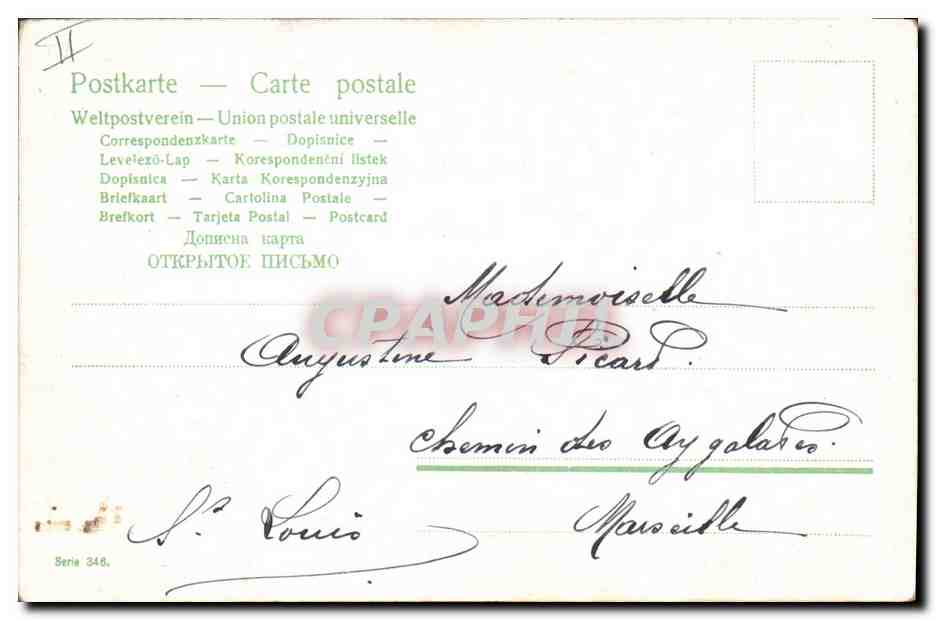 II
Postkarte — Carte postale
Weltpostverein — Union postale universelle
Correspondenzkarte — Dopisnice —
Levelező-Lap — Korespondenční lístek
Dopisnica — Karta Korespondenzyjna
Briefkaart — Cartolina Postale —
Brefkort — Tarjeta Postal — Postcard
Дописна карта
ОТКРЫТОЕ ПИСЬМО
Mademoiselle
CPAPHIL
Augustine Picard.
Chemin des Aygalades.
St. Louis Marseille
Serie 346.